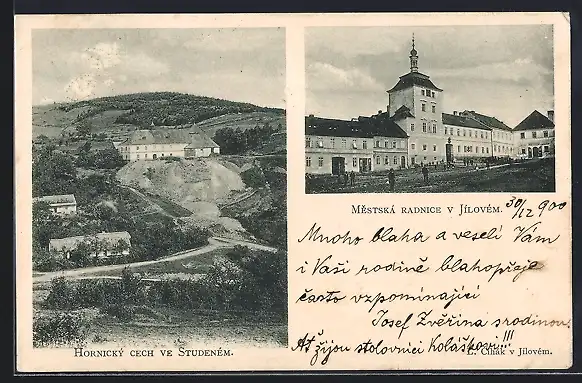 MĚSTSKÁ RADNICE V JÍLOVÉM.
30/12 900
Mnoho blaha a veselí Vám
i Vaší rodině blahopřeje
často vzpomínající
Josef Zvěřina s rodinou.
Ať žijou stolovníci Koláškovi!!!
HORNICKÝ CECH VE STUDENÉM.
L. Cihák v Jílovém.